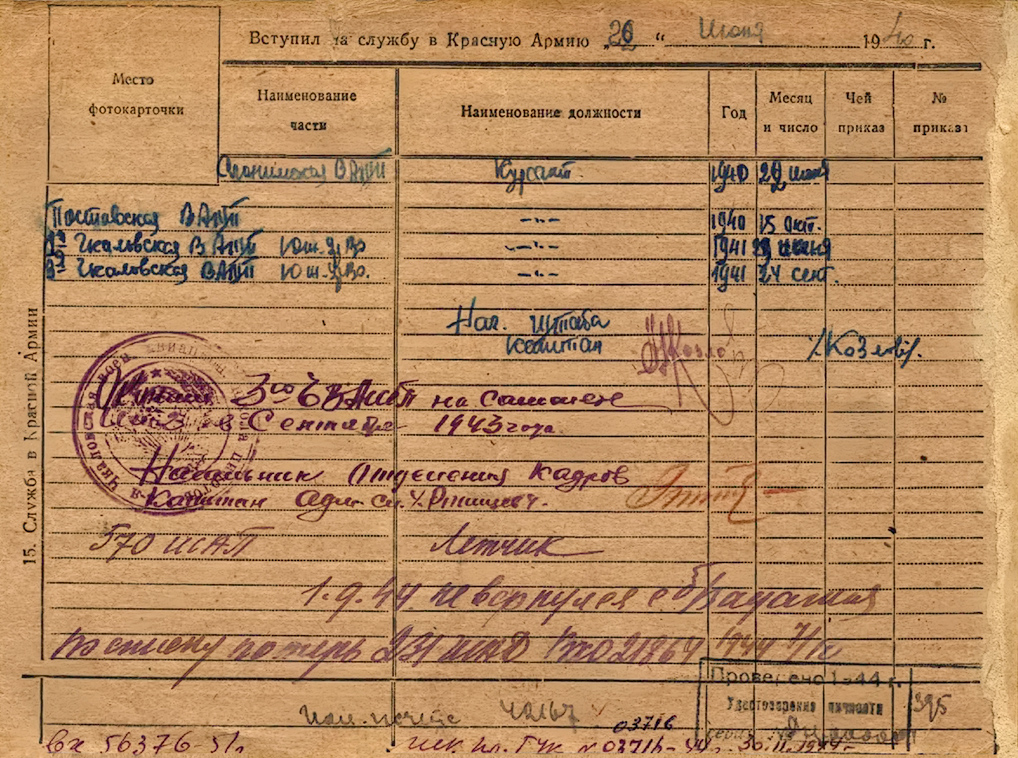 Вступил на службу в Красную Армию „20" Июня 1940 г.
Место фотокарточки
Наименование части
Наименование должности
Год
Месяц и число
Чей приказ
№ приказа
Слонимская ВАШП Курсант 1940 29 июня
Поставская ВАШП —"— 1940 15 окт.
Чкаловская ВАШП Юж.Ур.Во —"— 1941 29 июня
Чкаловская ВАШП Юж.Ур.Во. —"— 1941 24 сент.
Нач. штаба
капитан /Козлов/.
3ю ЧВАШП на самолете
в Сентябре 1943 года.
Начальник Отделения Кадров
Капитан Адм. сл.
570 ШАП Летчик
1.9.44 не вернулся с б/задания
По списку потерь 231 шад 021864 1944
Проверено 1944 г.
Удостоверение личности
395
42167
03716
вх 56376-51г
03716
15. Служба в Красной Армии